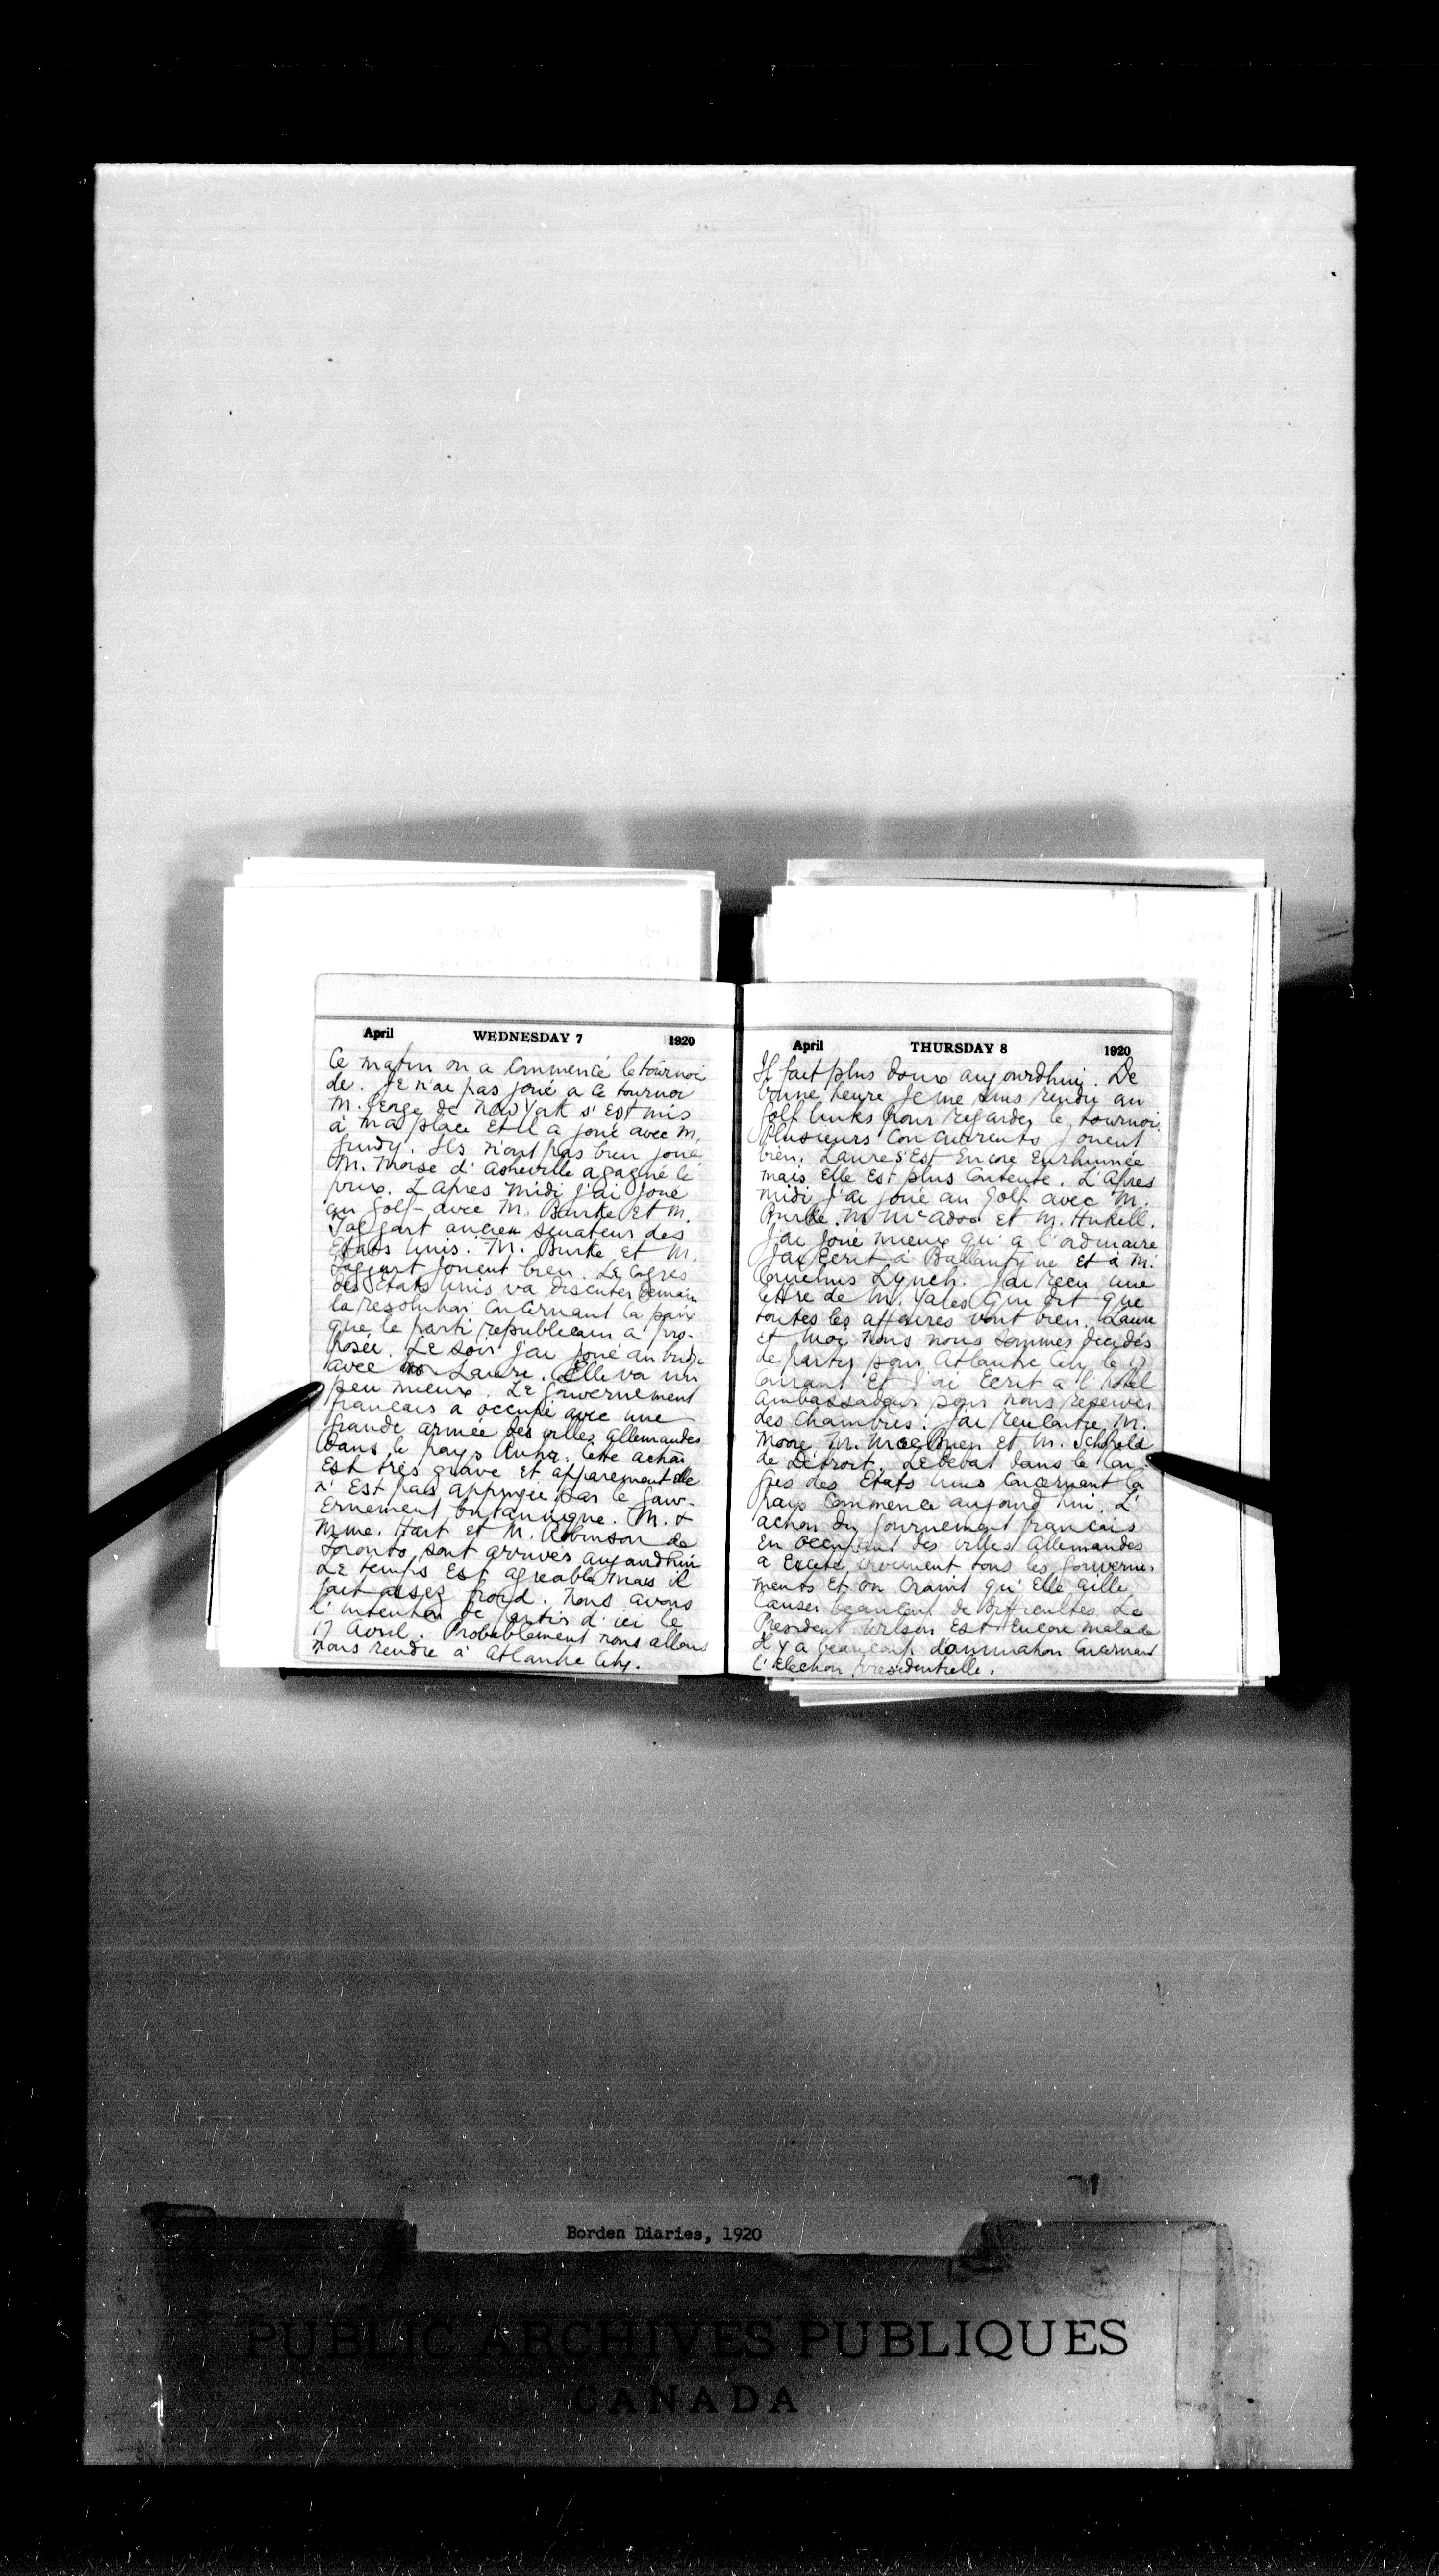 April WEDNESDAY 7 1920
Ce matin on a commencé le tournoi
de. Je n'ai pas joué a ce tournoi
M. de New York s'est mis
à ma place et il a joué avec M.
Gundy. Ils n'ont pas bien joué
M. Morse d'Asheville a gagné le
prix. L'apres midi j'ai joué
au golf avec M. Burke et M.
Taggart ancien senateur des
Etats Unis. M. Burke et M.
Taggart jouent bien. Le Cogres
des Etats Unis va discuter demain
la resolution concernant la paix
que le parti republicain a pro-
posée. Le soir j'ai joué au
avec Laure. Elle va un
peu mieux. Le Gouvernement
francais a occupé avec une
grande armée des villes Allemandes
dans le pays. Cette action
est très grave et apparement elle
n'est pas appuyée par le Gouv-
ernement britannique. M. &
Mme. Hart et M. Robinson de
Toronto sont arrives aujourdhui
Le temps est agreable mais il
fait assez froid. Nous avons
l'intention de partir d'ici le
17 Avril. Probablement nous allons
nous rendre à Atlantic City.
April THURSDAY 8 1920
Il fait plus doux aujourdhui. De
bonne heure je me suis rendu au
golf links pour regarder le tournoi.
Plusieurs concurrents jouent
bien. Laure s'est encore enrhumée
mais elle est plus contente. L'apres
midi j'ai joué au golf avec M.
Burke. M McAdoo et M. Hukell.
J'ai joué mieux qu'a l'ordinaire
J'ai ecrit à Ballantyne et à M.
Cornelius Lynch. J'ai recu une
lettre de M. Yates qui dit que
toutes les affaires vont bien. Laure
et moi nous nous sommes decidés
de partir pour Atlantic City le 17
courant et j'ai ecrit a l'hotel
Ambassadeur pour nous reserver
des chambres. J'ai rencontre M.
Moore M. et M. Schofield
de Détroit. Le debat dans le Con-
gres des Etats Unis concernant la
paix commence aujourd'hui. L'
action du gouvernement francais
en occupant des villes Allemandes
a excité vivement tous les gouverne-
ments et on craint qu'elle aille
causer beaucoup de difficultés. Le
President Wilson est encore malade
Il y a beaucoup d'animation concernant
l'election presidentielle.
Borden Diaries, 1920
PUBLIC ARCHIVES PUBLIQUES
CANADA